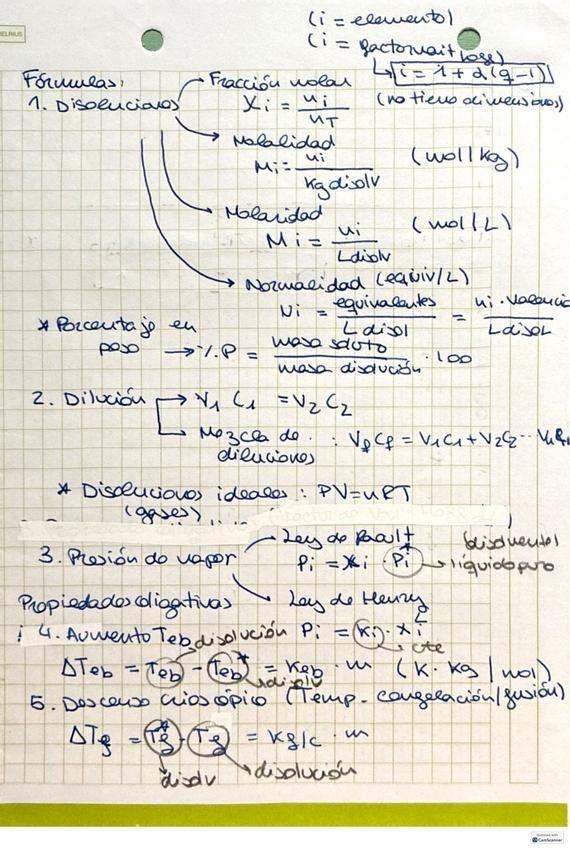 (i = elemento)
(i = factor vait Hoff)
i = 1 + α(q-1)
Fórmulas:
1. Disoluciones
Fracción molar
Xi = ni / nT (no tiene dimensiones)
Molalidad
Mi = ni / Kg disolv (mol/kg)
Molaridad
Mi = ni / L disolv (mol/L)
Normalidad (equiv/L)
Ni = equivalentes / L disol = ni · valencia / L disol
* Porcentaje en peso → %P = masa soluto / masa disolución · 100
2. Dilución → V1 C1 = V2 C2
Mezcla de diluciones : Vf Cf = V1C1 + V2C2 ...
* Disoluciones ideales : PV=nRT
(gases)
3. Presión de vapor
Ley de Raoult
Pi = Xi · Pi* → líquido puro
(disolvente)
Ley de Henry
Pi = Ki · Xi
cte
Propiedades coligativas
4. Aumento Teb
disolución
ΔTeb = Teb - Teb* = Keb · m (K·Kg/mol)
disolv
5. Descenso crioscópio (Temp. congelación/fusión)
ΔTf = Tf* - Tf = Kf/c · m
disolv disolución
CamScanner